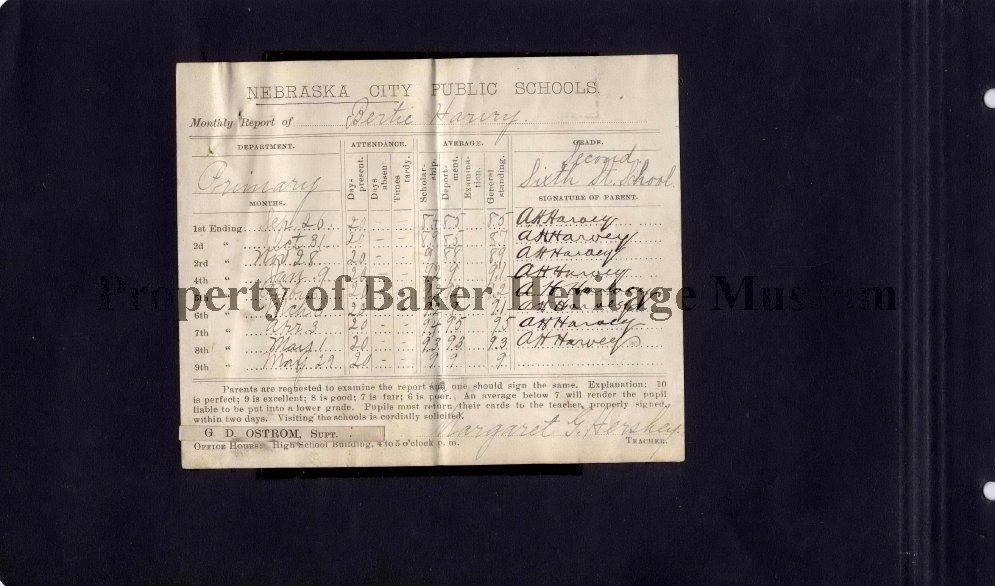 NEBRASKA CITY PUBLIC SCHOOLS.
Monthly Report of Bertie Harvey.
DEPARTMENT. ATTENDANCE. AVERAGE. GRADE.
Primary Days present. Days absen- Times tardy. Scholar-ship. Deport-ment. Examina-tion. General standing. Second
Sixth St. School
MONTHS. SIGNATURE OF PARENT.
1st Ending Sep. 26 20 85 AH Harvey
2d " Oct 31 20 - - 87 AH Harvey
2rd " Nov 28 20 - - 9 88 89 AH Harvey
4th " Jan. 9 20 AH Harvey
5th "
6th " AH Harvey
7th " Apr 3 20 - - 94 95 95 AH Harvey
8th " May 1 20 - - 93 93 93 AH Harvey
9th " May 29 20 - - 9 9 9
Property of Baker Heritage Museum
Parents are requested to examine the report and one should sign the same. Explanation: 10
is perfect; 9 is excellent; 8 is good; 7 is fair; 6 is poor. An average below 7 will render the pupil
liable to be put into a lower grade. Pupils must return their cards to the teacher, properly signed,
within two days. Visiting the schools is cordially solicited.
G. D. OSTROM, SUPT. Margaret G. Hershey
OFFICE HOURS: High School Building, 4 to 5 o'clock p. m. TEACHER.